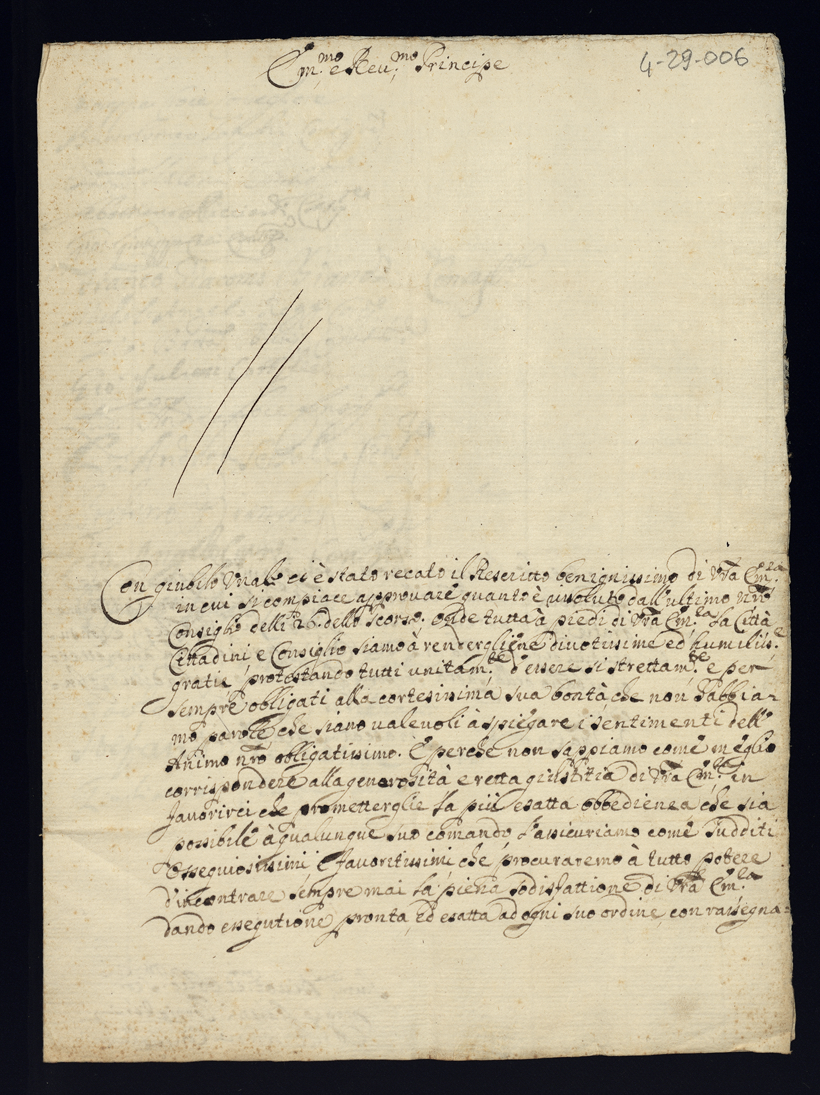 Em.mo e Reu.mo Principe
4-29-006
Con giubilo Vnale ci è stato recato il Rescritto benignissimo di Vrã Em.za
in cui si compiace approuare quanto è risoluto dall'ultimo nrõ
Consiglio delli 26. dello scorso. onde tutta à piedi di Vrã Em.za La Città
Cittadini e Consiglio siamo à rendergliene diuotissime ed humiliss.e
gratie protestando tutti unitam.te d'essere si strettam.te e per
sempre obligati alla cortesissima sua bontà che non habbia-
mo parole che siano valeuoli à spiegare i sentimenti dell'
Animo nrõ obligatissimo. E perche non sappiamo come meglio
corrispondere alla generosità e retta giustitia di Vrã Em.za in
fauorirci che prometterglie La più esatta obbedienza che sia
possibile à qualunque suo comando L'assicuriamo come sudditi
Ossequiosissimi e fauoritissimi che procuraremo à tutto potere
d'incontrare sempre mai La piena sodisfattione di Vrã Em.za
dando essegutione pronta, ed esatta ad ogni suo ordine, con rassegna-